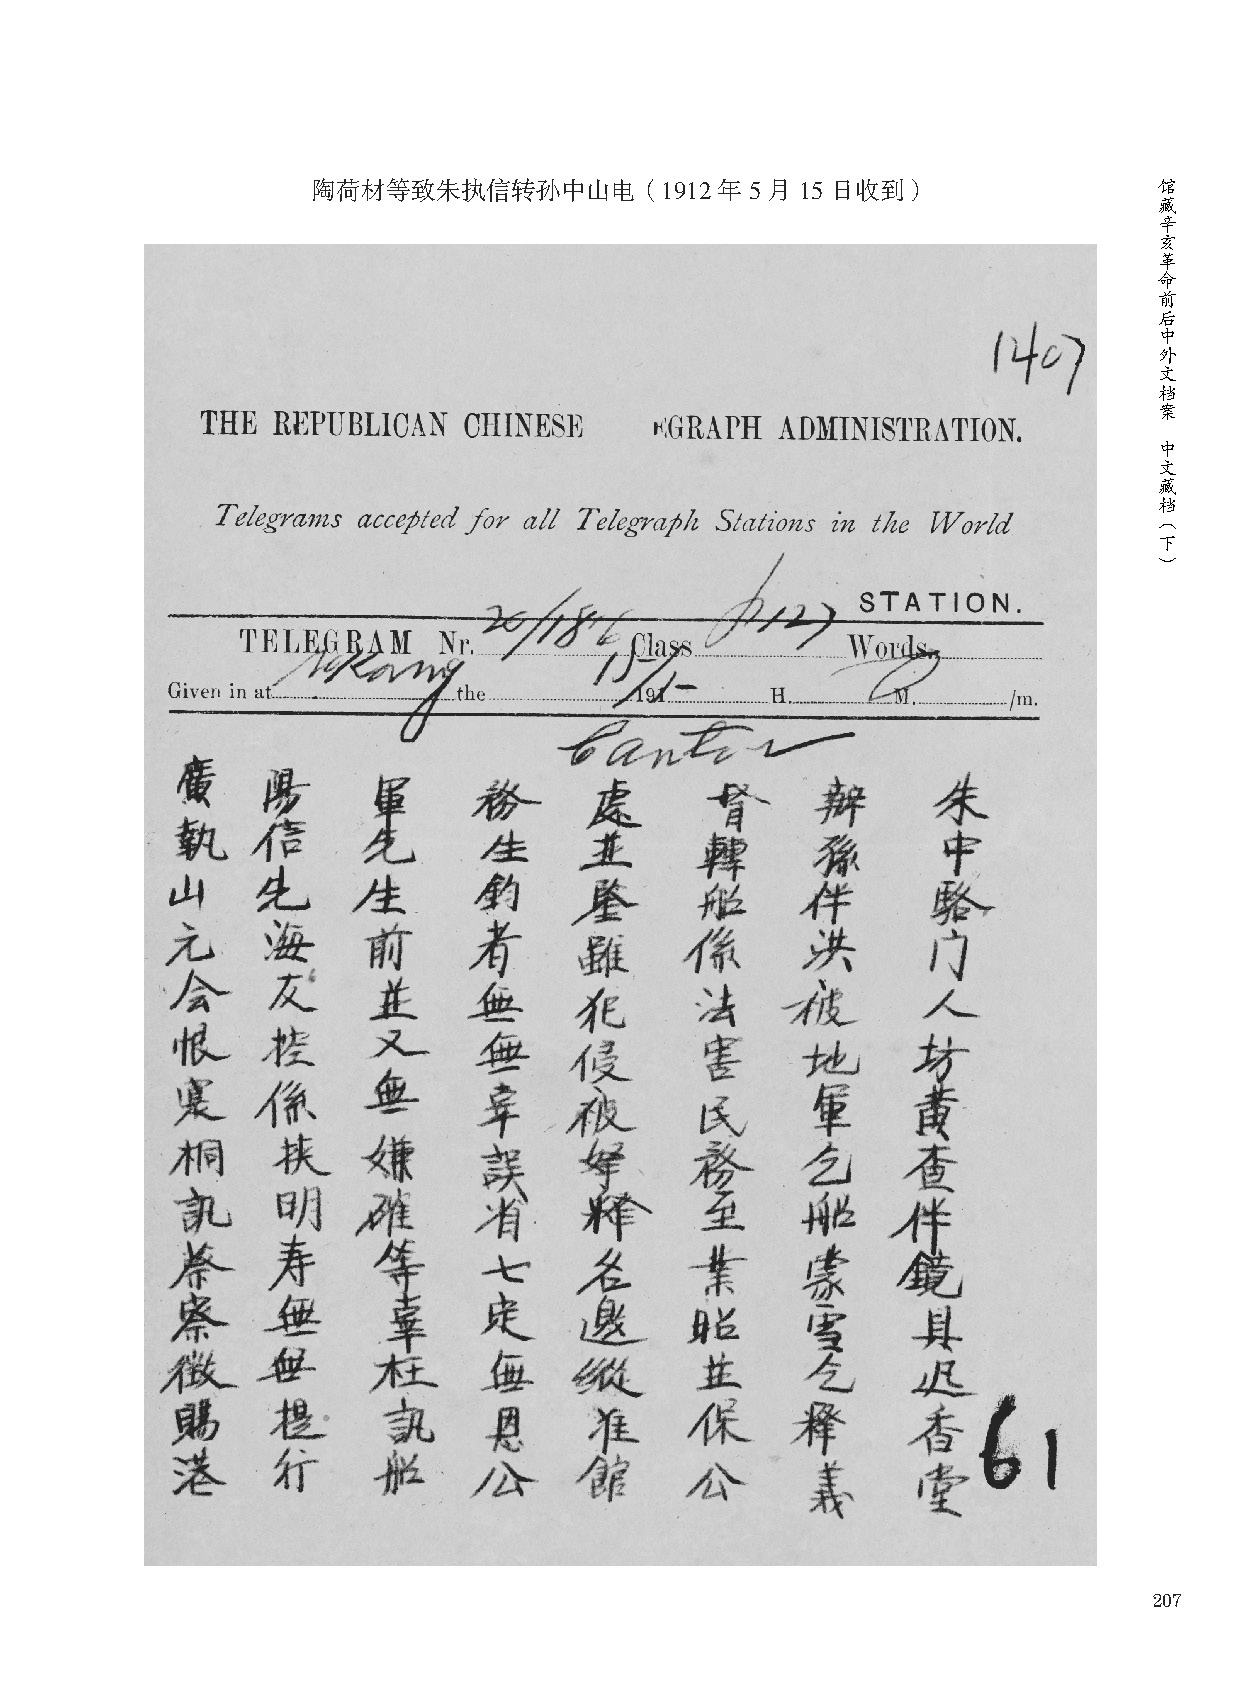 陶荷材等致朱执信转孙中山电（1912年5月15日收到）
馆藏辛亥革命前后中外文档案 中文藏档（下）
1407
THE REPUBLICAN CHINESE EGRAPH ADMINISTRATION.
Telegrams accepted for all Telegraph Stations in the World
STATION.
TELEGRAM Nr. Class 127 Words
Given in at Hkong the 15/5 191 H. M. /m.
Canton
廣陽軍務處督辦朱
執信先生並轉孫中
山先生鈞鋻船伴駱
元海前者雖係洪门
会友並無犯法被人
恨控又無侵害地坊
寔係無辜被民軍黄
桐挟嫌誤拏務乞查
訊明確省釋至船伴
蔡寿等七名業蒙鏡
察無辜定邀昭雪具
徵無枉無縱並乞迟
賜提訊恩准保釋香
港行船公館公義堂
61
207